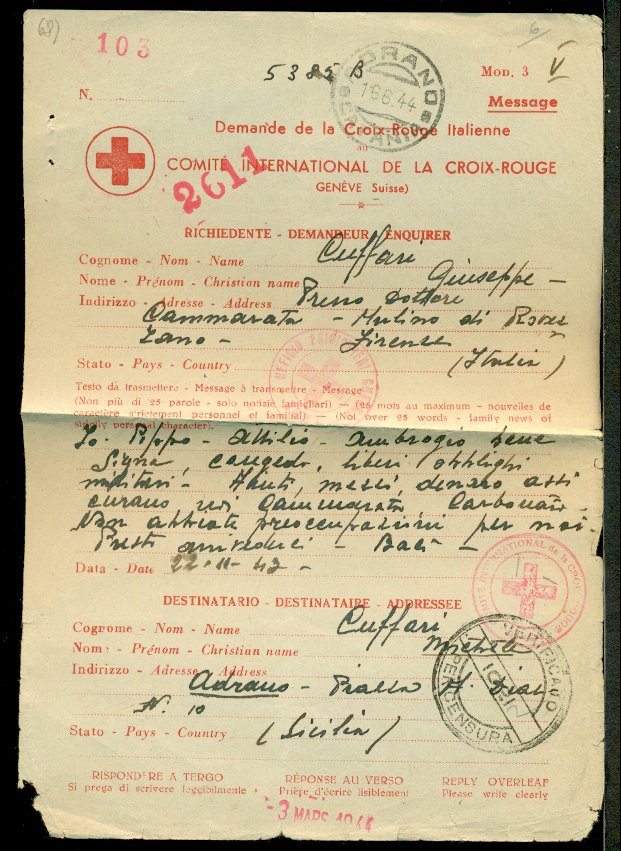 68)
6
103
5385 B
ADRANO
16.6.44
CATANIA
MOD. 3
V
N.
Message
Demande de la Croix-Rouge Italienne
au
COMITÉ INTERNATIONAL DE LA CROIX-ROUGE
2611
GENÈVE Suisse)
RICHIEDENTE - DEMANDEUR - ENQUIRER
Cognome - Nom - Name Cuffari
Nome - Prénom - Christian name Giuseppe -
Indirizzo - Adresse - Address Presso dottore
Cammarata - Mulino di Rovez
zano - Firenze
Stato - Pays - Country (Italia)
Testo da trasmettere - Message à transmettre - Message
(Non più di 25 parole - solo notizie famigliari) — (25 mots au maximum - nouvelles de
caractère strictement personnel et familial) — (Not over 25 words - family news of
strictly personal character).
Io Pippo - Attilio - Ambrogio bene
Signa, congedo, liberi obblighi
militari - denaro assi
curano Cammarata Carbonaro -
Non abbiate preoccupazioni per noi -
Presto arrivederci - Baci -
Data - Date 22-11-43 -
COMITÉ INTERNATIONAL de la CROIX-ROUGE
DESTINATARIO - DESTINATAIRE - ADDRESSEE
Cognome - Nom - Name Cuffari
Nome - Prénom - Christian name Michele
Indirizzo - Adresse - Address
Adrano - Piazza A. Diaz
N. 10
Stato - Pays - Country (Sicilia)
VERIFICATO
PER CENSURA
RISPONDERE A TERGO RÉPONSE AU VERSO REPLY OVERLEAF
Si prega di scrivere leggibilmente Prière d'écrire lisiblement Please write clearly
- 3 MARS 1944